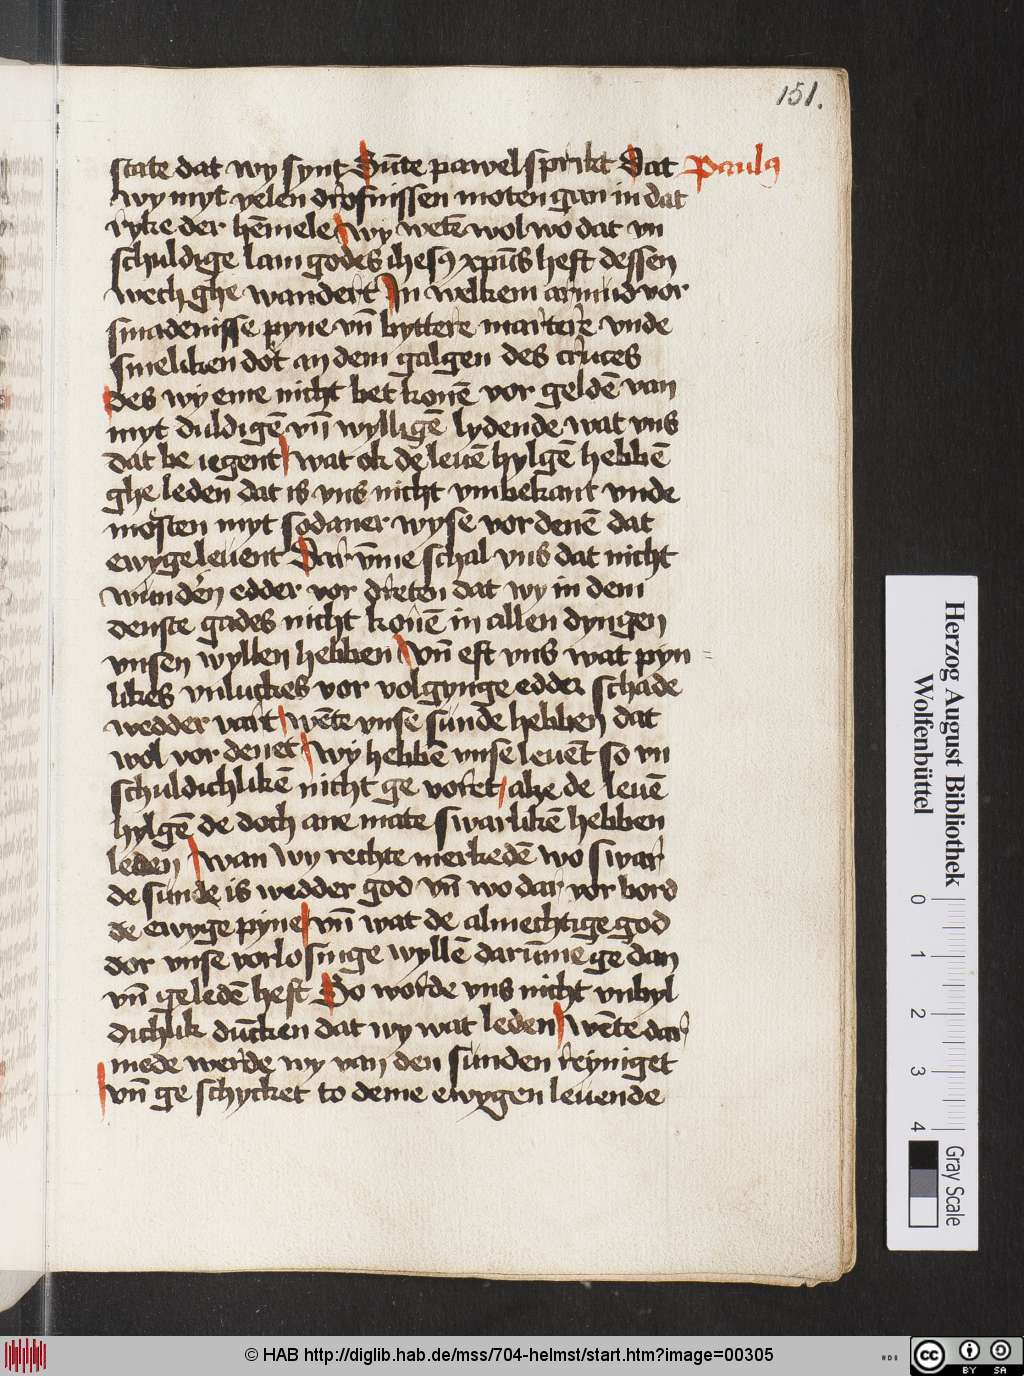 151.
state dat wy synt Sūte pawel sprikt Dat Paulꝰ
wy myt velen drofnissen moten gan in dat
ryke der hēmele wy wetē wol wo dat vn
schuldige lam godes ihesꝰ xpūs heft dessen
wech ghe wandert In welkem armud vor
smadenisse pyne vn̄ byttere martere vnde
smeliken dot an dem galgen des cruces
des wy eme nicht bet konē vor geldē van
myt duldigē vn̄ wylligē lydende wat vns
dat be iegent wat ok de leuē hylgē hebbē
ghe leden dat is vns nicht vmbekant vnde
mosten myt sodaner wyse vor denē dat
ewyge leuent Dar v̄me schal vns dat nicht
wunden edder vor dreten dat wy in dem
denste gades nicht konē in allen dyngen
vnsen wyllen hebben vn̄ eft vns wat pyn=
likes vnluckes vor volgynge edder schade
wedder vart wēte vnse sunde hebben dat
wol vor denet wy hebbē vnse leuēt so vn
schuldichlikē nicht ge voret alze de leuē
hylgē de doch ane mate swarlikē hebben
leden wan wy rechte merkedē wo swar
de sunde is wedder god vn̄ wo dar vor bord
de ewyge pyne vn̄ wat de almechtige god
dor vnse vorlosinge wyllē darūme ge dan
vn̄ geledē heft So worde vns nicht vnbyl
dichlik ducken dat wy wat leden wēte dar
mede werde wy van den sunden reyniget
vn̄ ge schycket to deme ewygen leuende
Herzog August Bibliothek
Wolfenbüttel
0 1 2 3 4
Gray Scale
© HAB http://diglib.hab.de/mss/704-helmst/start.htm?image=00305
HAB
cc BY SA